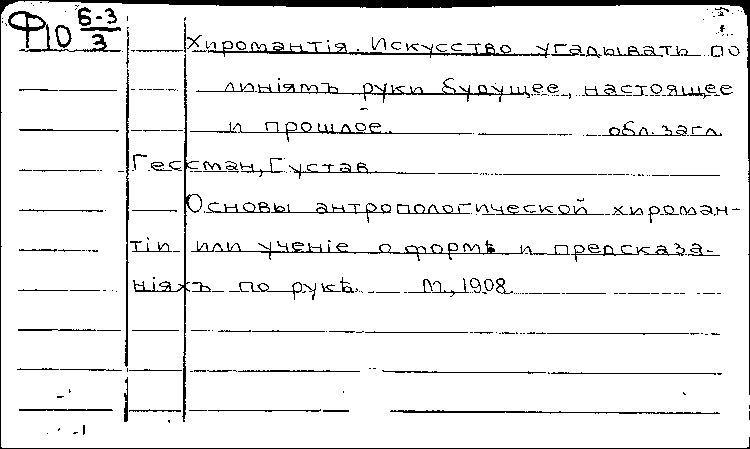 Ф10 Б-3/3
Хиромантія. Искусство угадывать по
линіямъ руки будущее, настоящее
и прошлое. обл. загл.
Гессман, Густав.
Основы антропологической хироман-
тіи или ученіе о формѣ и предсказа-
ніяхъ по рукѣ. М., 1908.